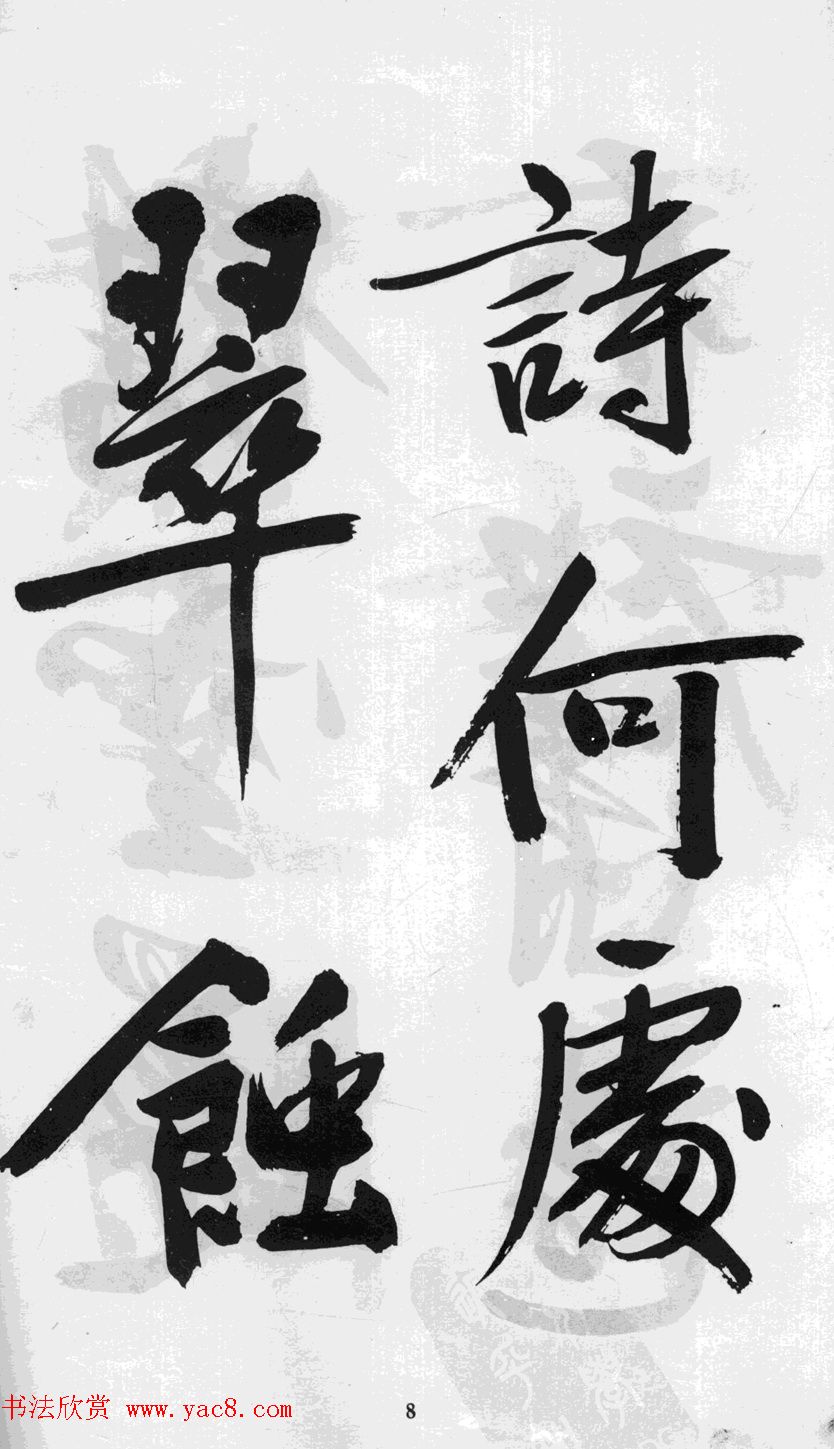 詩何處
翠蝕
书法欣赏 www.yac8.com
8